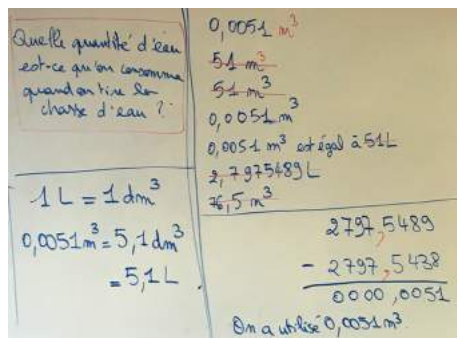 Quelle quantité d'eau
est-ce qu'on consomme
quand on tire la
chasse d'eau ?
1 L = 1 dm³
0,0051 m³ = 5,1 dm³
= 5,1 L
0,0051 m³
51 m³
51 m³
0,0051 m³
0,0051 m³ est égal à 51L
2,7975489 L
76,5 m³
2797,5489
- 2797,5438
0000,0051
On a utilisé 0,0051 m³.